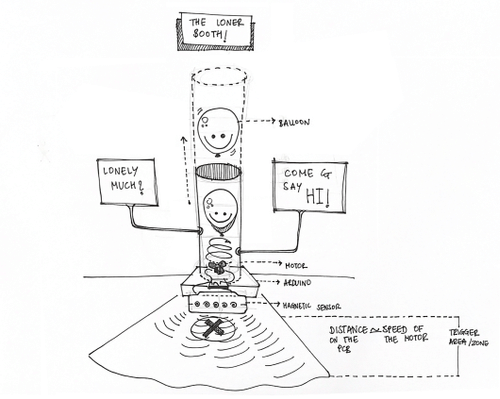 THE LONER
BOOTH!
BALLOON
LONELY
MUCH?
COME &
SAY
HI!
MOTOR
ARDUINO
MAGNETIC SENSOR
DISTANCE ∝ SPEED OF
ON THE THE MOTOR
PCB
TRIGGER
AREA/ZONE